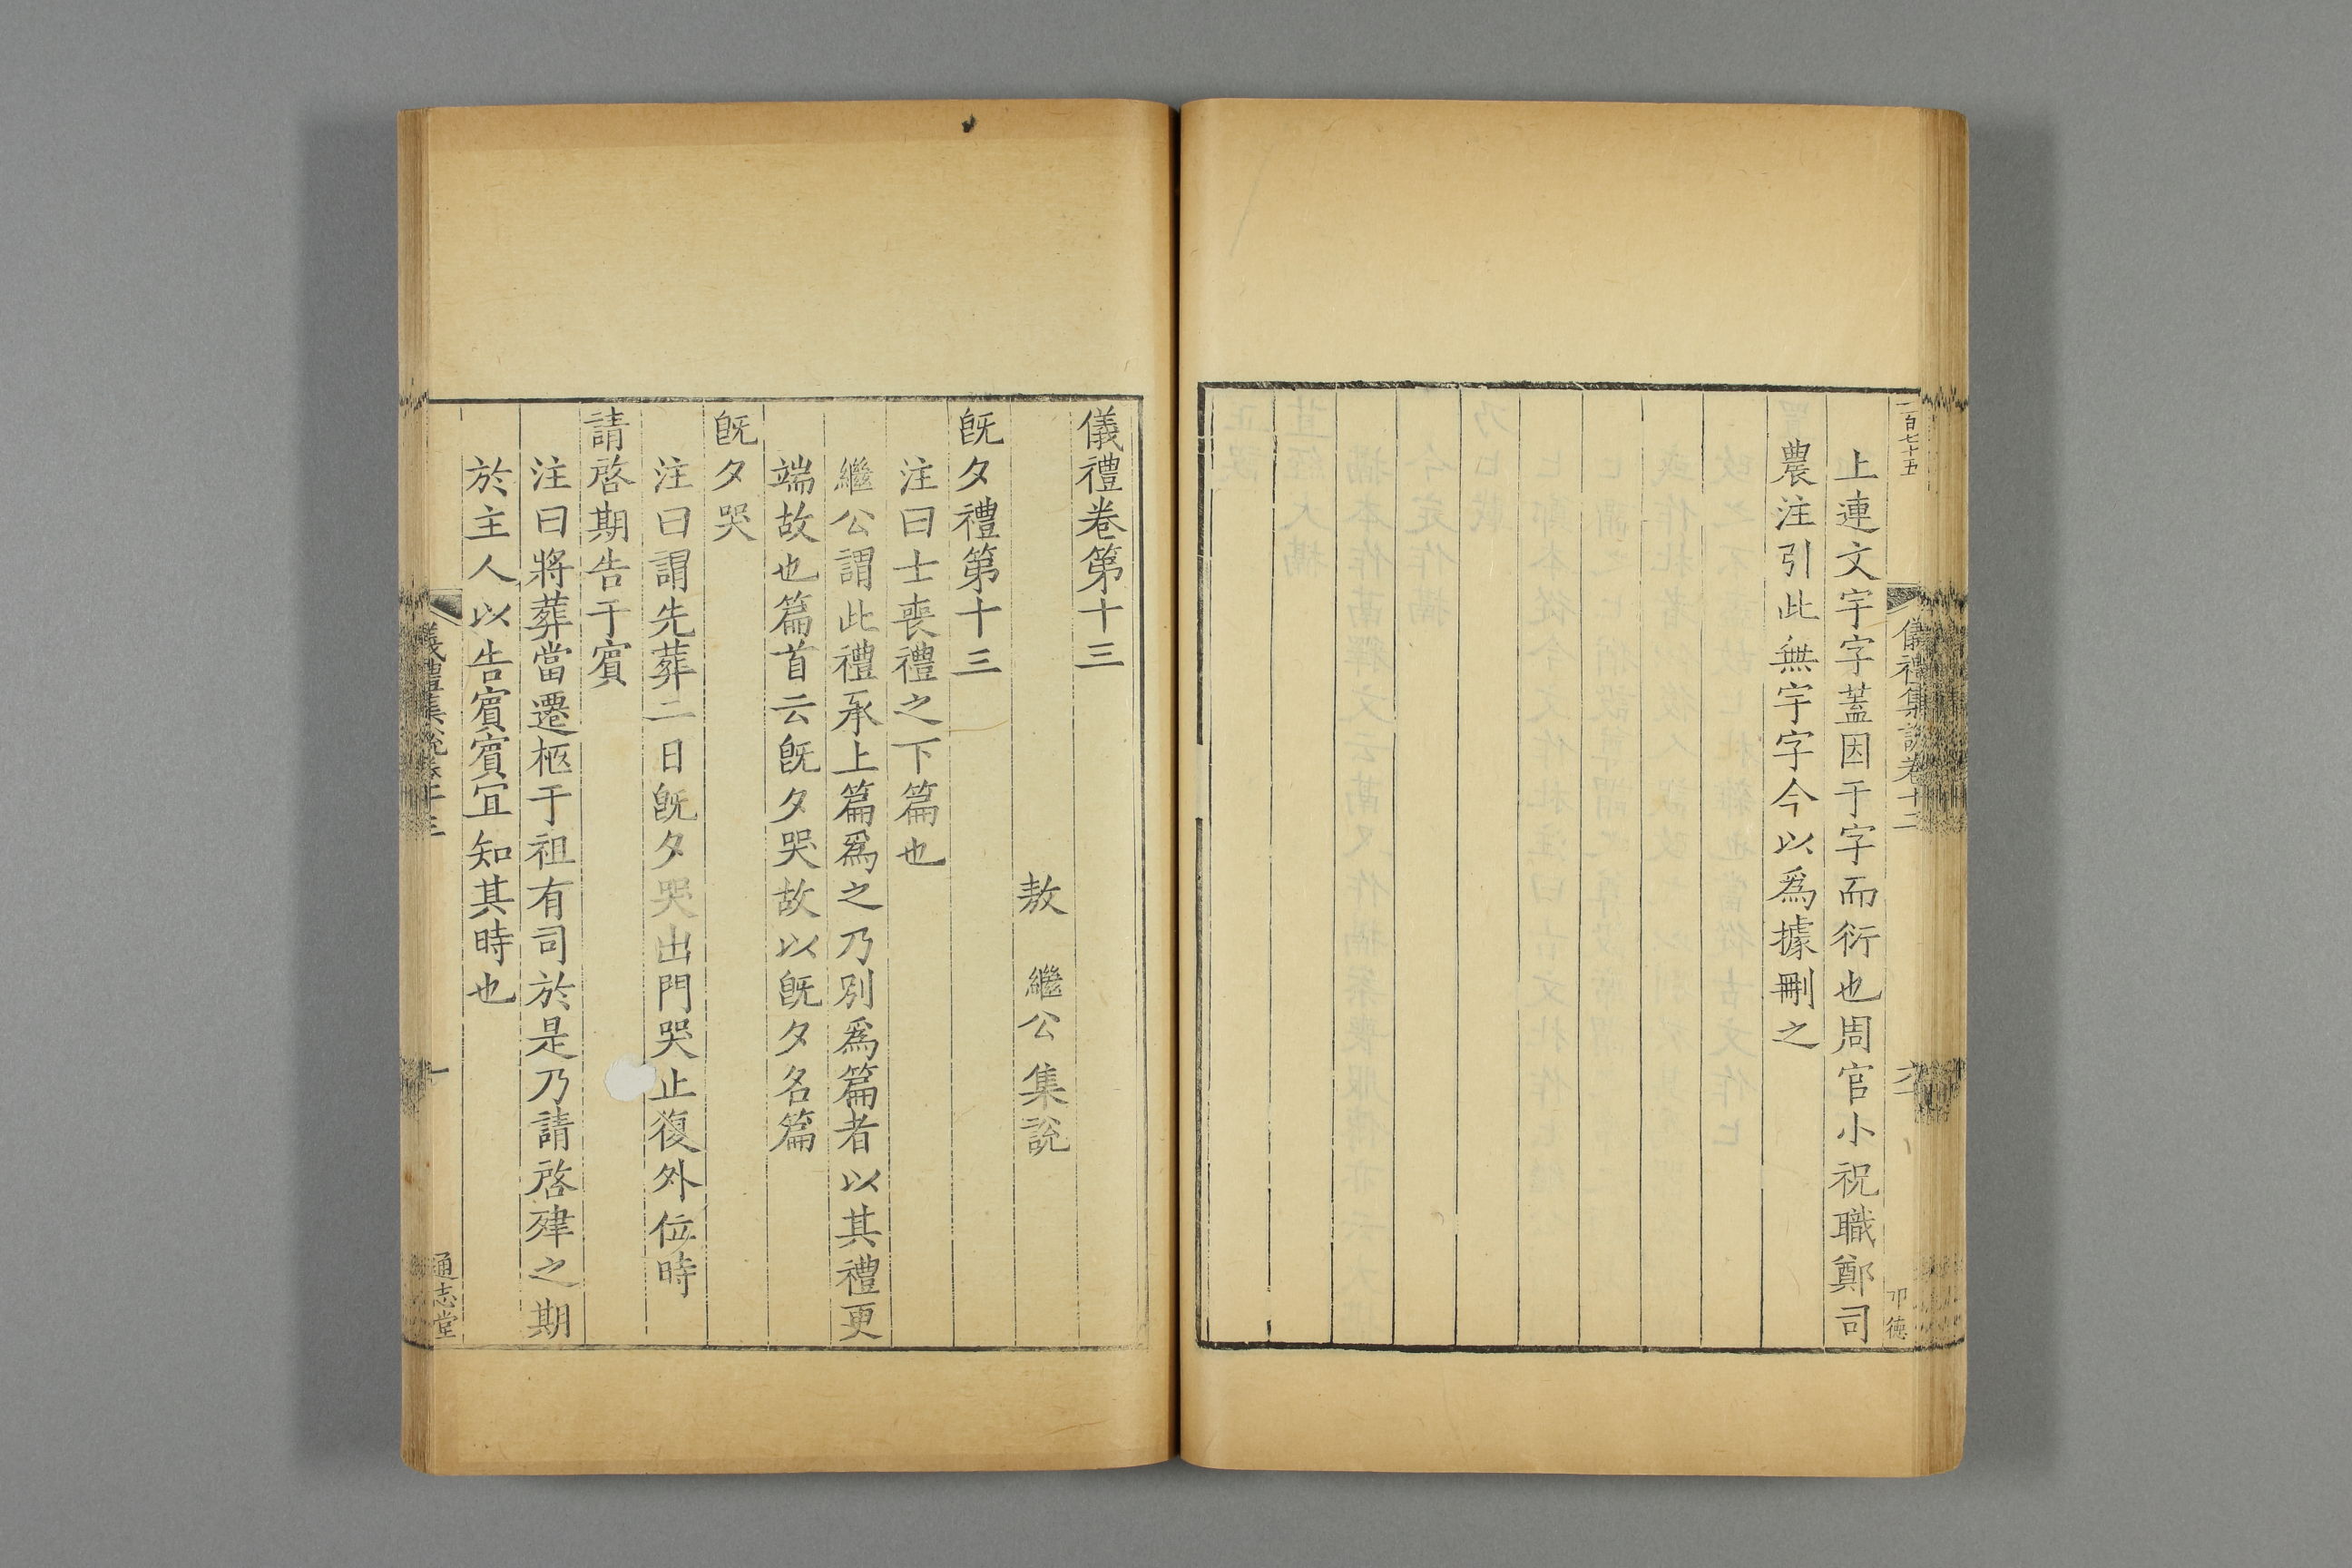 二百七十五
儀禮集說卷十二
六十
卬德
上連文宇字蓋因于字而衍也周官小祝職鄭司
農注引此無宇字今以爲據刪之
儀禮卷第十三
敖繼公集說
旣夕禮第十三
注曰士喪禮之下篇也
繼公謂此禮承上篇爲之乃別爲篇者以其禮更
端故也篇首云旣夕哭故以旣夕名篇
旣夕哭
注曰謂先葬二日旣夕哭出門哭止復外位時
請啓期告于賓
注曰將葬當遷柩于祖有司於是乃請啓肂之期
於主人以告賓賓宜知其時也
儀禮集說卷十三
一
通志堂